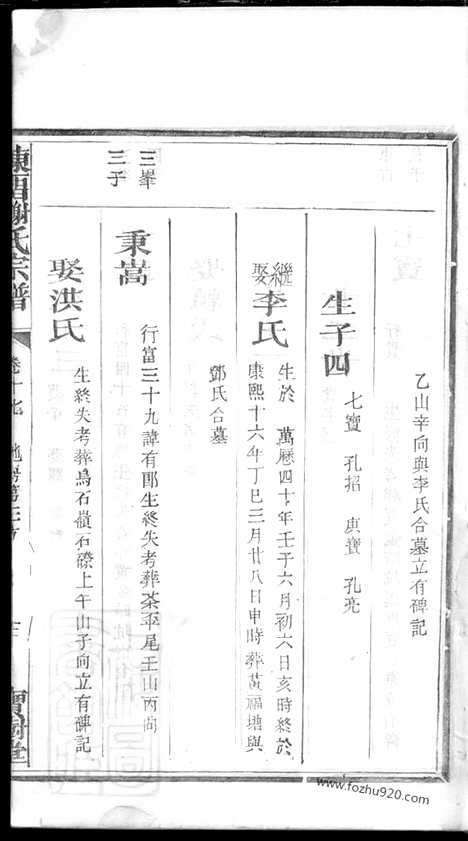 乙山辛向與李氏合墓立有碑記
生子四
七寶 孔招 庚寶 孔亮
繼娶李氏
生於 萬曆四十年壬子六月初六日亥時終於
康熙十六年丁巳三月廿八日申時葬黃福塘與
鄧氏合墓
三峯
三子
秉嵩
行富三十九諱有郎生終失考葬茶平尾壬山丙向
娶洪氏
生終失考葬烏石嶺石磜上午山子向立有碑記
謝氏宗譜
寶樹堂
www.fozhu920.com